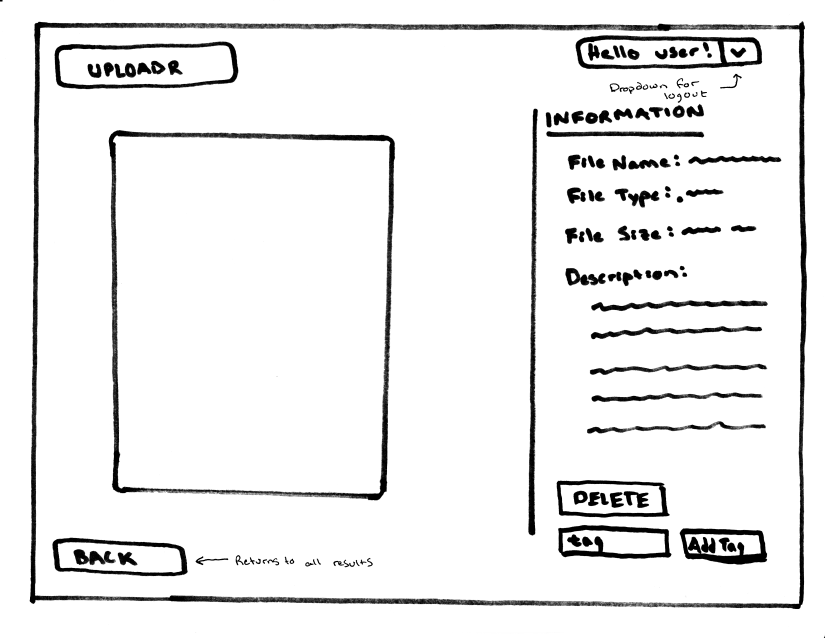 UPLOADR
Hello user!
Dropdown for
logout
INFORMATION
File Name:
File Type: .
File Size:
Description:
DELETE
tag
Add Tag
BACK
Returns to all results